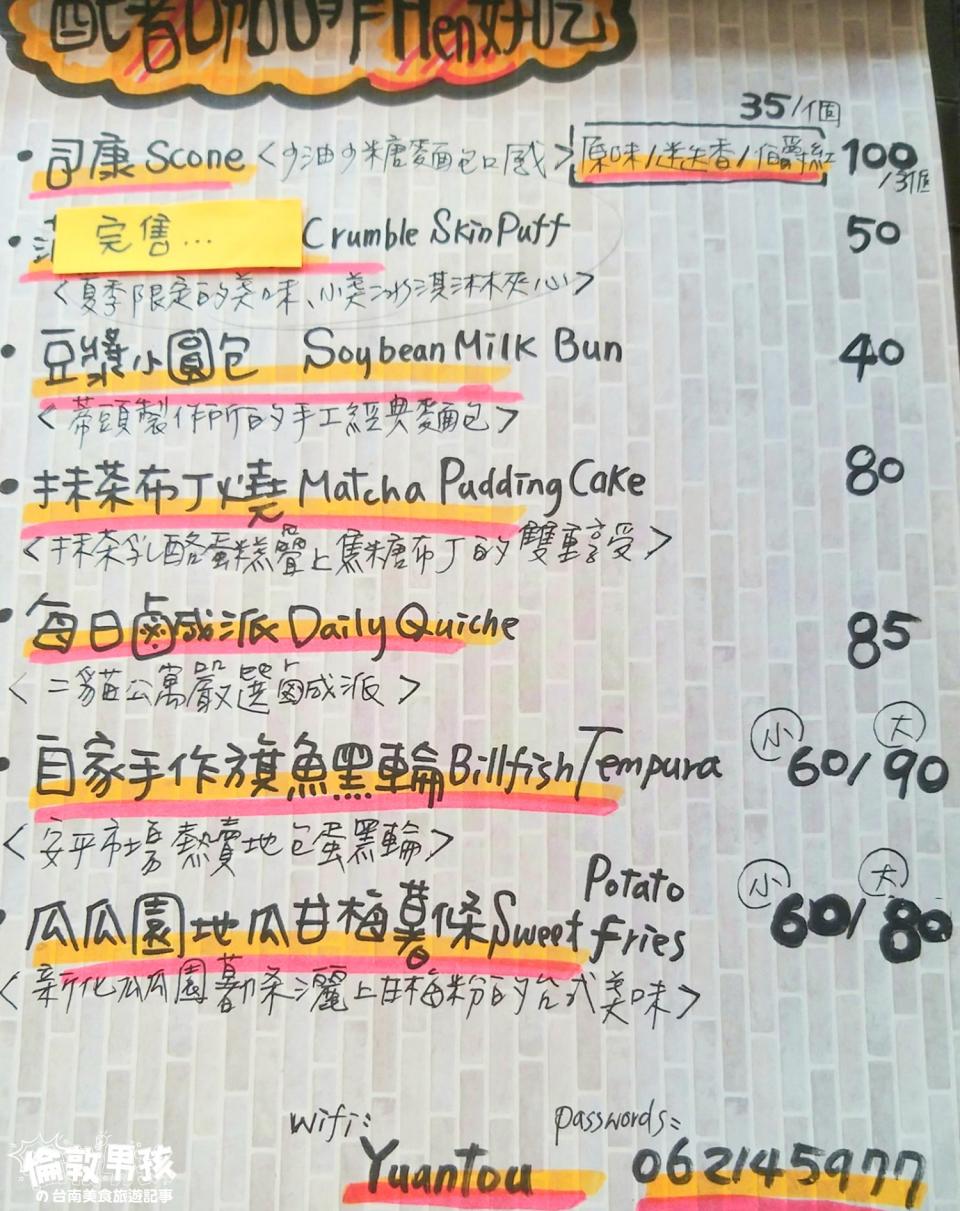 配著咖啡Hen好吃
35/個
• 司康 Scone <少油少糖麵包口感> 原味/迷迭香/伯爵紅 100/3個
• 完售... Crumble Skin Puff 50
<夏季限定的美味、小美冰淇淋夾心>
• 豆漿小圓包 Soybean Milk Bun 40
<蒂頭製作所的手工經典麵包>
• 抹茶布丁燒 Matcha Pudding Cake 80
<抹茶乳酪蛋糕疊上焦糖布丁的雙重享受>
• 每日鹹派 Daily Quiche 85
<二貓公寓嚴選鹹派>
• 自家手作旗魚黑輪 Billfish Tempura 小60/大90
<安平市場熱賣地包蛋黑輪>
• 瓜瓜園地瓜甘梅薯條 Sweet Potato Fries 小60/大80
<新化瓜瓜園薯條灑上甘梅粉的台式美味>
wifi: passwords:
Yuantou 062145977
倫敦男孩
の台南美食旅遊記事